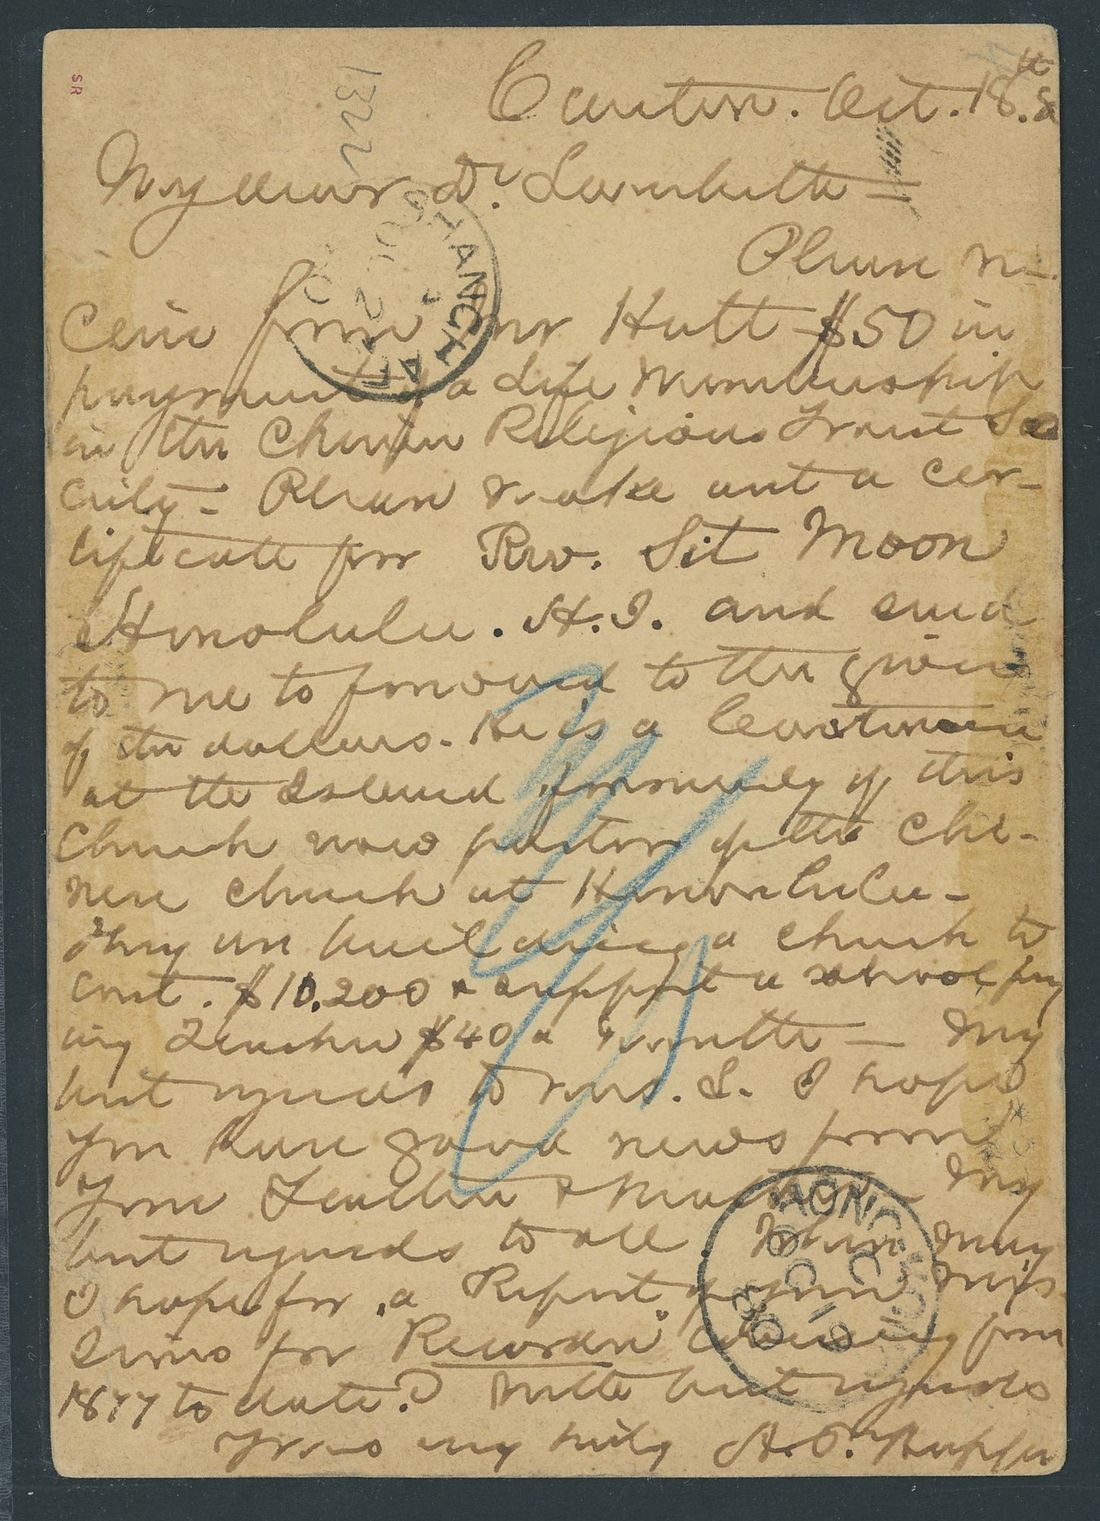 SR
132
Canton. Oct. 18th. 8
My dear Dr. Lambuth —
Please re-
ceive from Mr Hutt $50 in
payment of a Life Membership
in the Chinese Religious Tract So
ciety - Please make out a cer-
tificate for Rev. Sit Moon
Honolulu. H.I. and send
to me to forward to the giver
of the dollars. He is a
at the Island formerly of this
Church now pastor of the Chi-
nese church at Honolulu -
They are building a church to
cost. $10.200 & support a school pay
ing Teacher $40 a month — My
best regards to Mrs. L. I hope
you have good news from
your - My
best regards to all. When may
I hope for a Report of your Mis
sions for "Recorder" coming from
1877 to date? With best regards
Yours very truly A.P. Happer
SHANGHAI
OCT 2
HONG KONG
C
OC 19
80